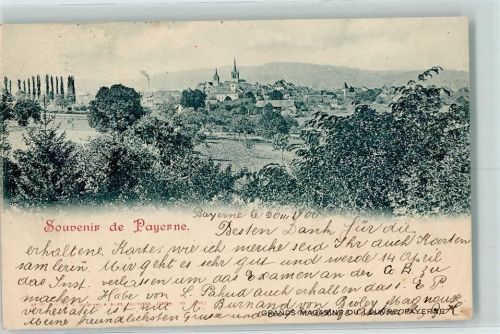 Souvenir de Payerne.
Payerne le 1900
Besten Dank für die
erhaltene Karte, wie ich merke seid Ihr auch Karten
sammleren. Mir geht es sehr gut und werde 14 April
das Inst. verlassen um das Examen an der G. B. zu
machen. Habe von L. Pahud auch erhalten das E. P
verheiratet ist mit A. Bornand von
Meine freundlichsten Grüsse
GRANDS MAGASINS DU LOUVRE PAYERNE